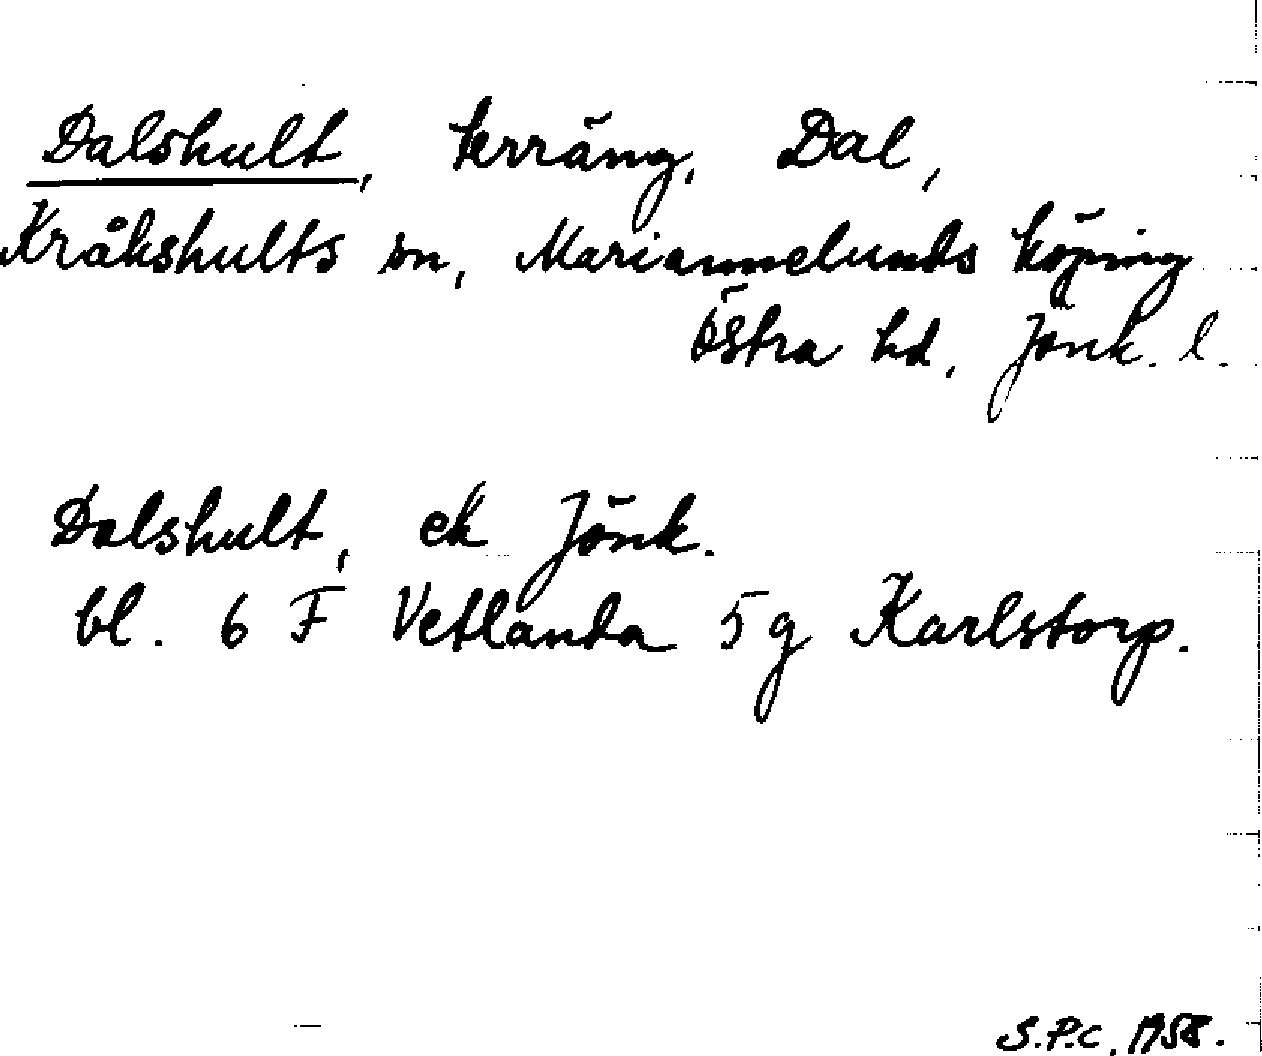 Dalshult, terräng, Dal,
Kråkshults sn, Mariannelunds köping
Östra hd, Jönk. l.
Dalshult, ek Jönk.
bl. 6 F Vetlanda 5g Karlstorp.
S.P.C. 1958.